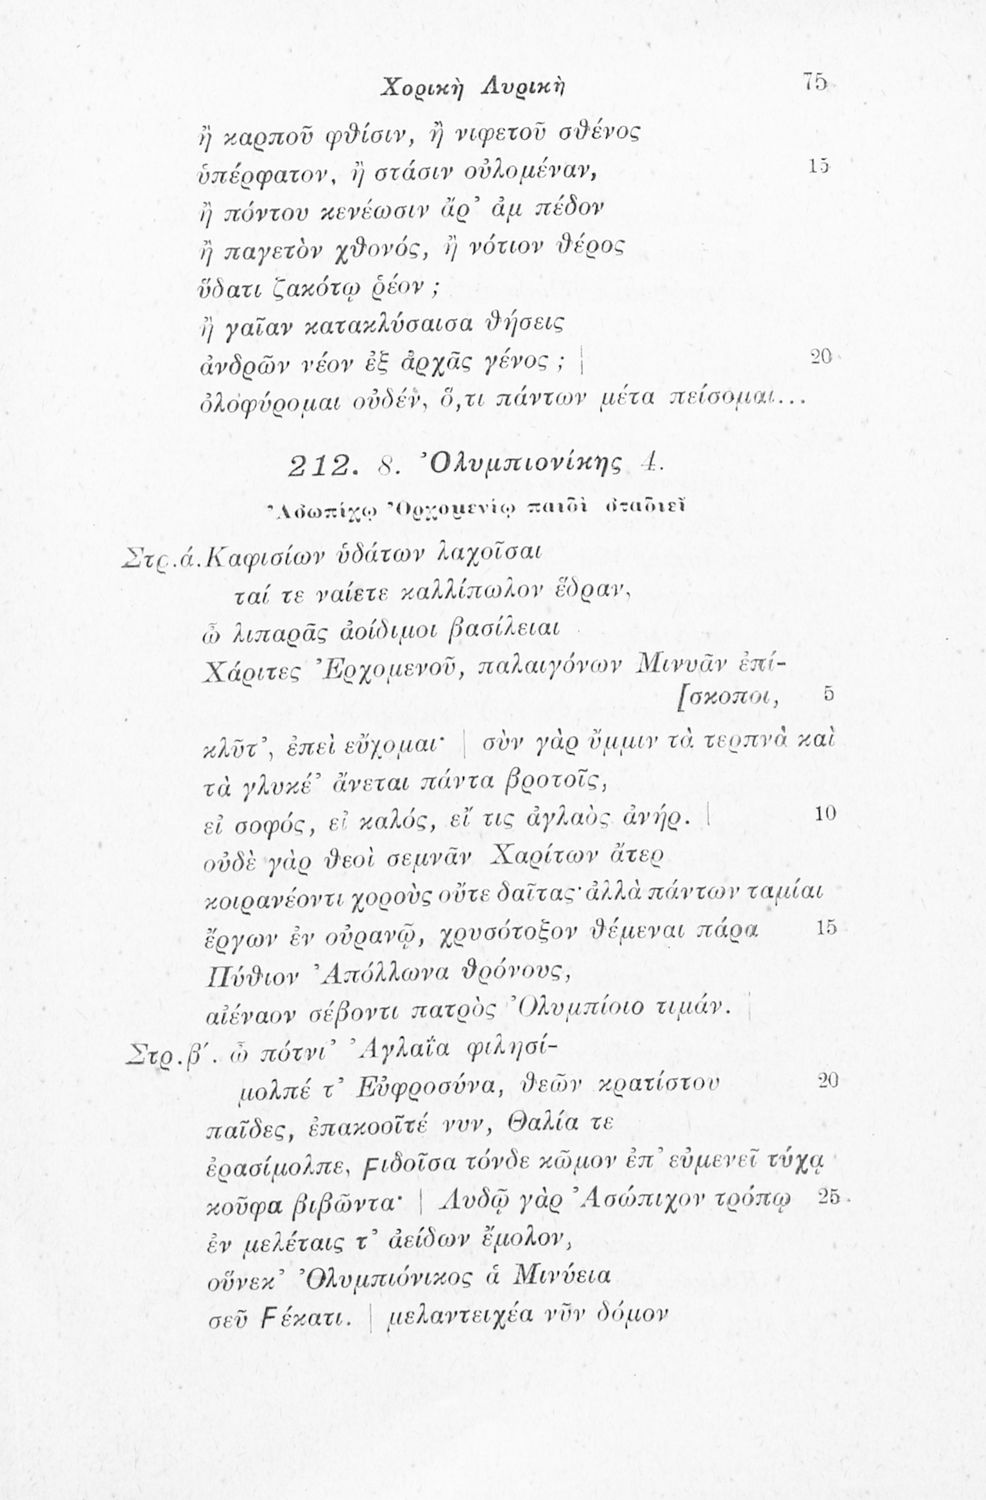 Χορικὴ Λυρικὴ 75
ἢ καρποῦ φθίσιν, ἢ νιφετοῦ σθένος
ὑπέρφατον, ἢ στάσιν οὐλομέναν, 15
ἢ πόντου κενέωσιν ἄρ’ ἀμ πέδον
ἢ παγετὸν χθονός, ἢ νότιον θέρος
ὕδατι ζακότῳ ῥέον ;
ἢ γαῖαν κατακλύσαισα θήσεις
ἀνδρῶν νέον ἐξ ἀρχᾶς γένος ; | 20
ὀλοφύρομαι οὐδέν, ὅ,τι πάντων μέτα πείσομαι...
212. 8. Ὀλυμπιονίκης 4.
Ἀσωπίχῳ Ὀρχομενίῳ παιδὶ σταδιεῖ
Στρ.ά. Καφισίων ὑδάτων λαχοῖσαι
ταί τε ναίετε καλλίπωλον ἕδραν,
ὦ λιπαρᾶς ἀοίδιμοι βασίλειαι
Χάριτες Ἐρχομενοῦ, παλαιγόνων Μινυᾶν ἐπί-
[σκοποι, 5
κλῦτ’, ἐπεὶ εὔχομαι· | σὺν γὰρ ὔμμιν τὰ τερπνὰ καὶ
τὰ γλυκέ’ ἄνεται πάντα βροτοῖς,
εἰ σοφός, εἰ καλός, εἴ τις ἀγλαὸς ἀνήρ. | 10
οὐδὲ γὰρ θεοὶ σεμνᾶν Χαρίτων ἄτερ
κοιρανέοντι χοροὺς οὔτε δαῖτας· ἀλλὰ πάντων ταμίαι
ἔργων ἐν οὐρανῷ, χρυσότοξον θέμεναι πάρα 15
Πύθιον Ἀπόλλωνα θρόνους,
αἰέναον σέβοντι πατρὸς Ὀλυμπίοιο τιμάν. |
Στρ.β΄. ὦ πότνι’ Ἀγλαΐα φιλησί-
μολπέ τ’ Εὐφροσύνα, θεῶν κρατίστου 20
παῖδες, ἐπακοοῖτέ νυν, Θαλία τε
ἐρασίμολπε, ϝιδοῖσα τόνδε κῶμον ἐπ’ εὐμενεῖ τύχᾳ
κοῦφα βιβῶντα· | Λυδῷ γὰρ Ἀσώπιχον τρόπῳ 25
ἐν μελέταις τ’ ἀείδων ἔμολον,
οὕνεκ’ Ὀλυμπιόνικος ἁ Μινύεια
σεῦ Ϝέκατι. | μελαντειχέα νῦν δόμον